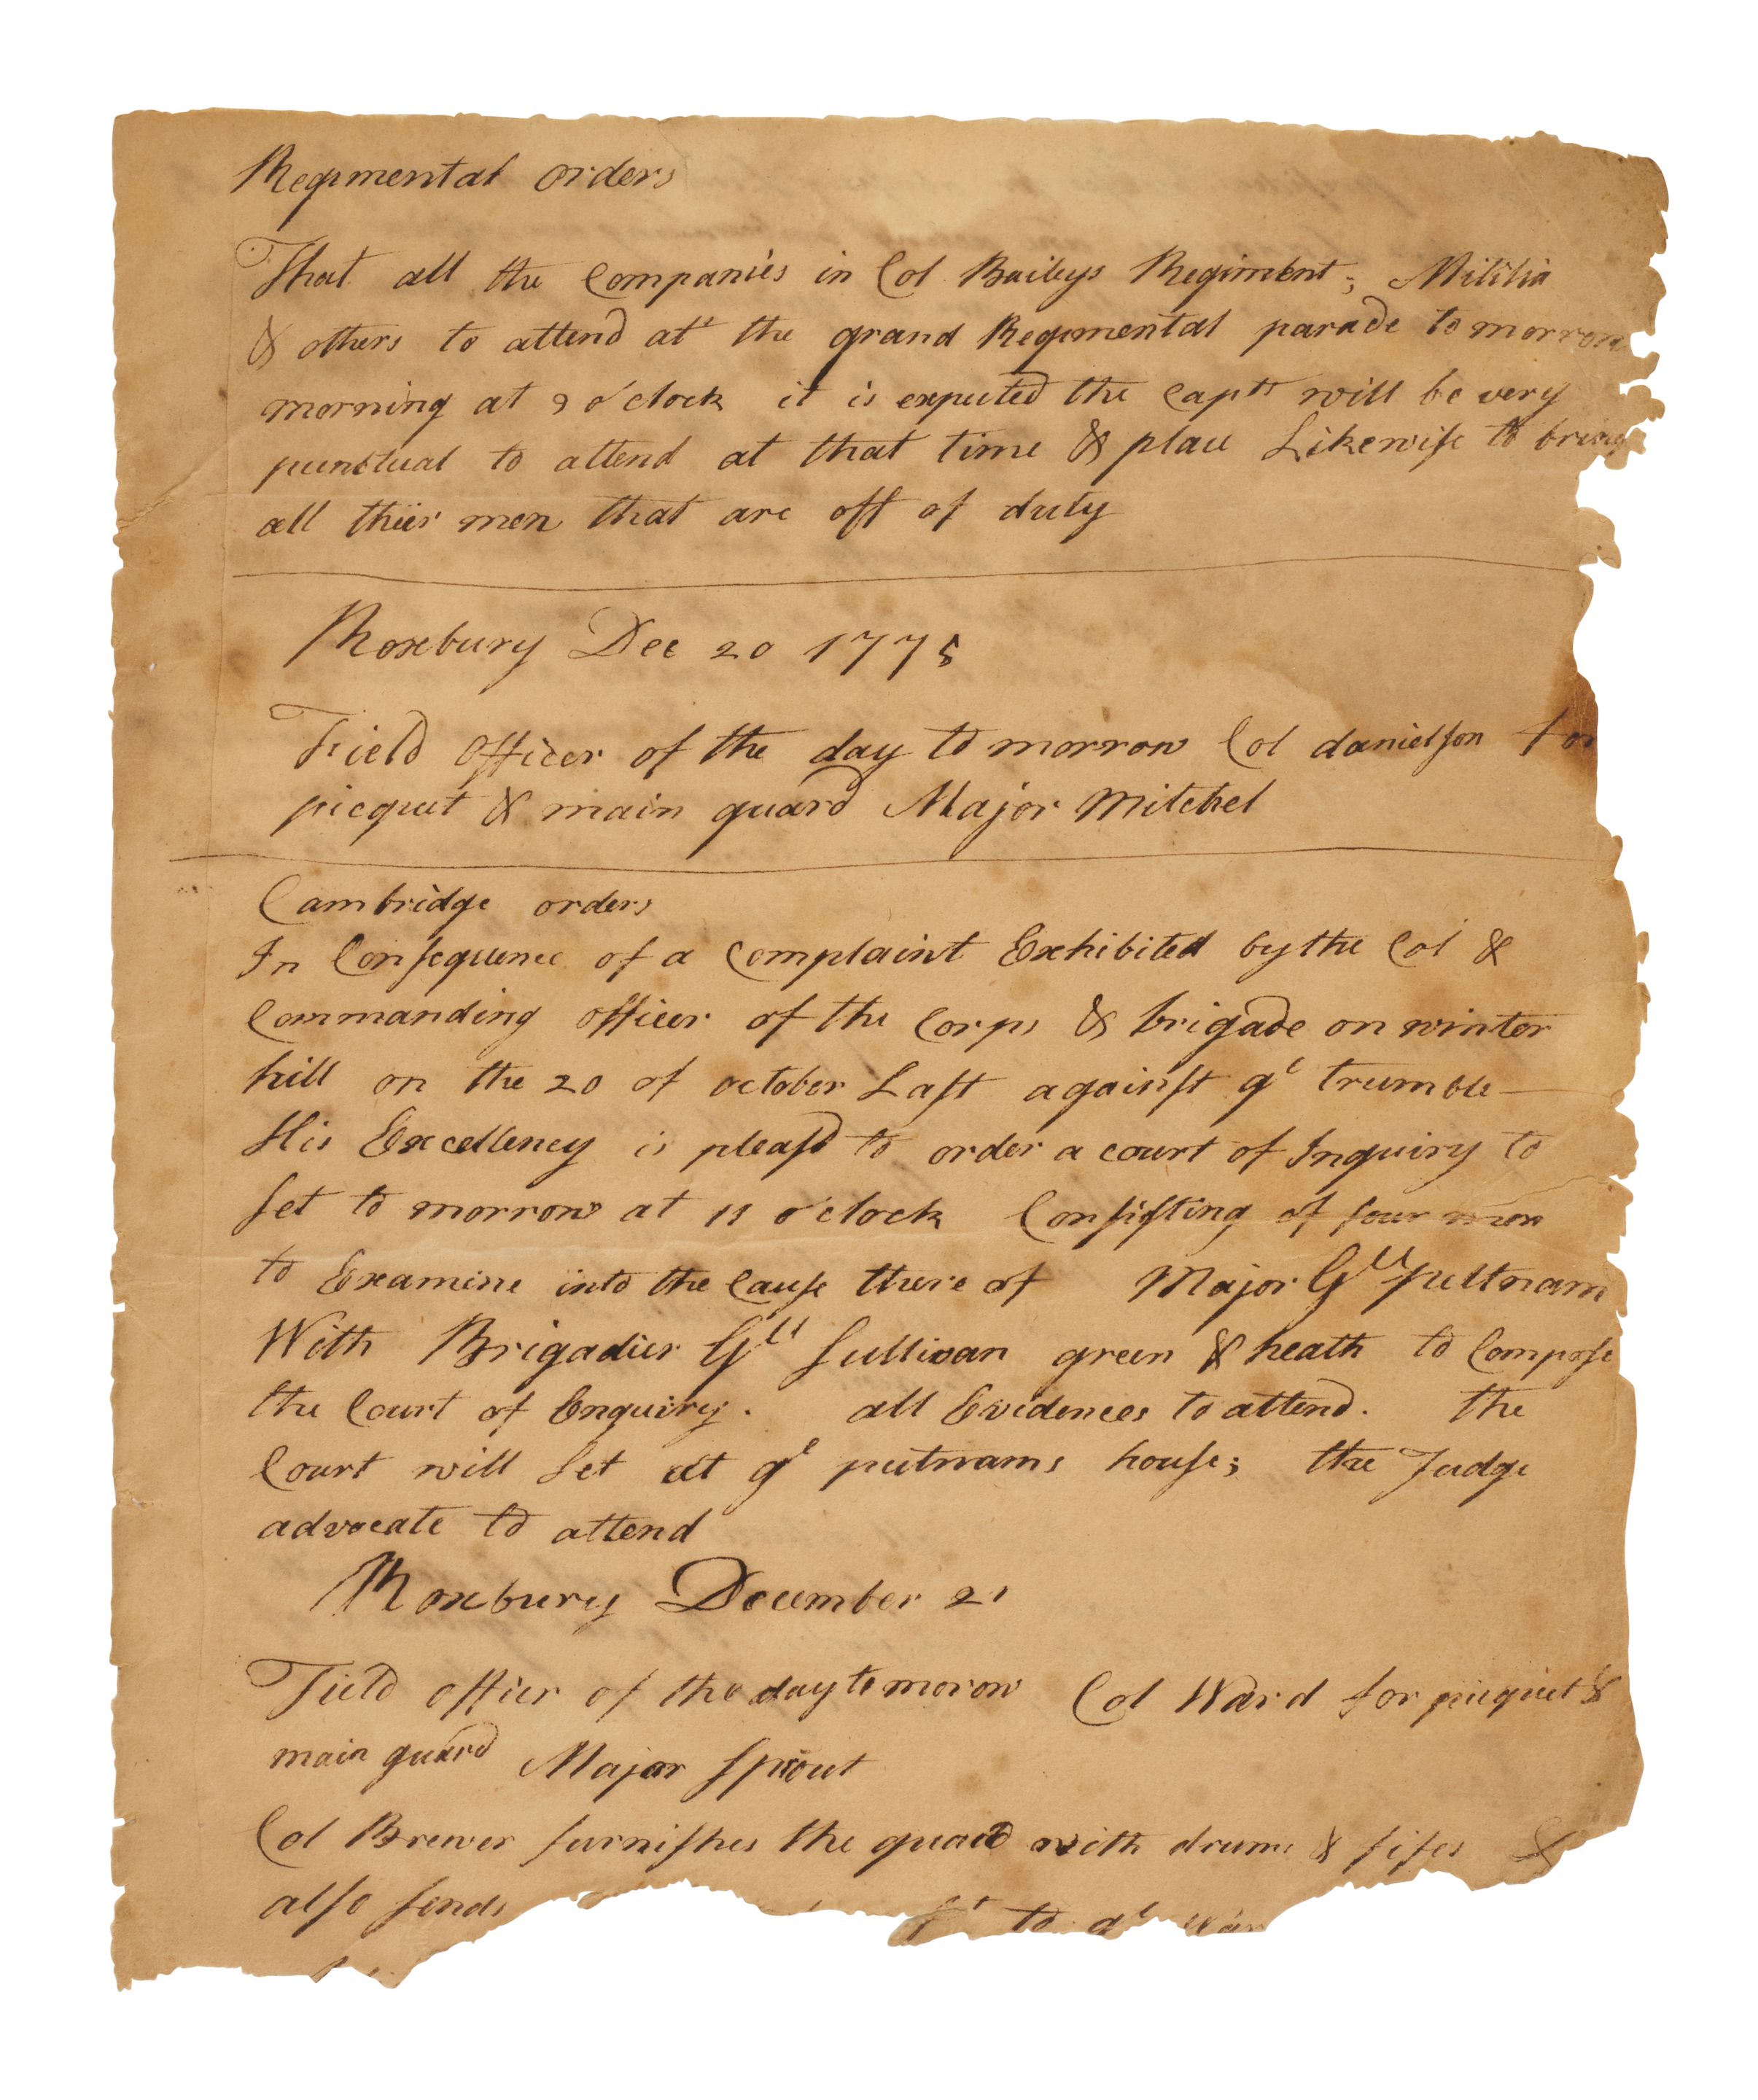 Regimental orders
That all the Companies in Col Baileys Regiment; Militia
& others to attend at the grand Regimental parade to morrow
morning at 9 o'clock it is expected the Capts will be very
punctual to attend at that time & place Likewiſe to bring
all thiir men that are off of duty
Roxbury Dec 20 1775
Field Officer of the day to morrow Col danielſon for
picquet & main guard Major Mitchel
Cambridge orders
In Conſequence of a Complaint Exhibited by the Col &
Commanding officer of the Corps & brigade on winter
hill on the 20 of october Laſt againſt gl trumble
His Excellency is pleaſd to order a court of Inquiry to
ſet to morrow at 11 o'clock Conſiſting of four men
to Examine into the Cauſe there of Major Gll putnam
With Brigadier Gll Sullivan green & heath to Compoſe
the Court of Enquirey. all Evidences to attend. the
Court will Set at gl putnams houſe; the Judge
advocate to attend
Roxbury December 21
Field officer of the day to morow Col Ward for picquet &
main guard Major Sprout
Col Brewer furniſhes the guard with drums & fifes &
alſo ſends to gl